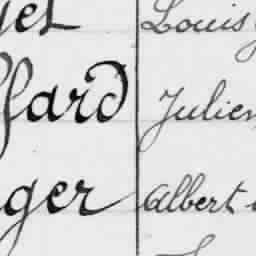 Louis
ffard Julien
ger Albert